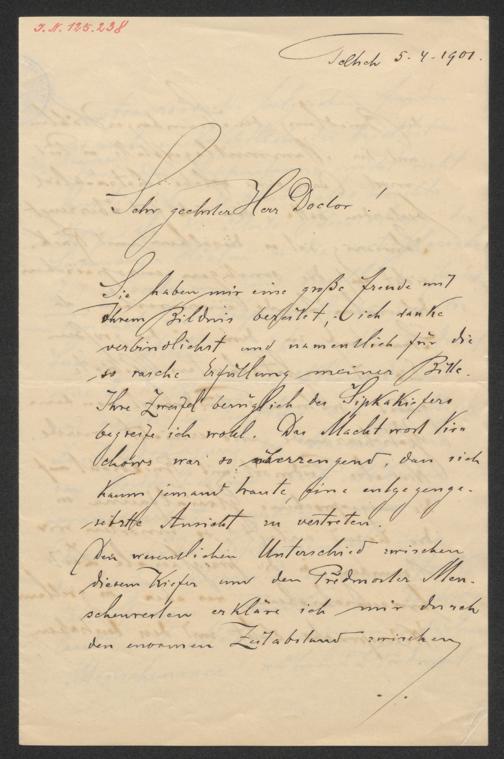 I.N. 125.238
Teltsch 5.4.1901.
Sehr geehrter Herr Doctor!
Sie haben mir eine große Freude mit
Ihrem Bildnis bereitet, ich danke
verbindlichst und namentlich für die
so rasche Erfüllung meiner Bitte.
Ihre Zweifel bezüglich des Šipkakiefers
begreife ich wohl. Das Machtwort Vir-
chows war so überzeugend, dass sich
kaum jemand traute, eine entgegenge-
setzte Ansicht zu vertreten.
Den wesentlichen Unterschied zwischen
diesem Kiefer und den Předmoster Men-
schenresten erkläre ich mir durch
den enormen Zeitabstand zwischen
./.